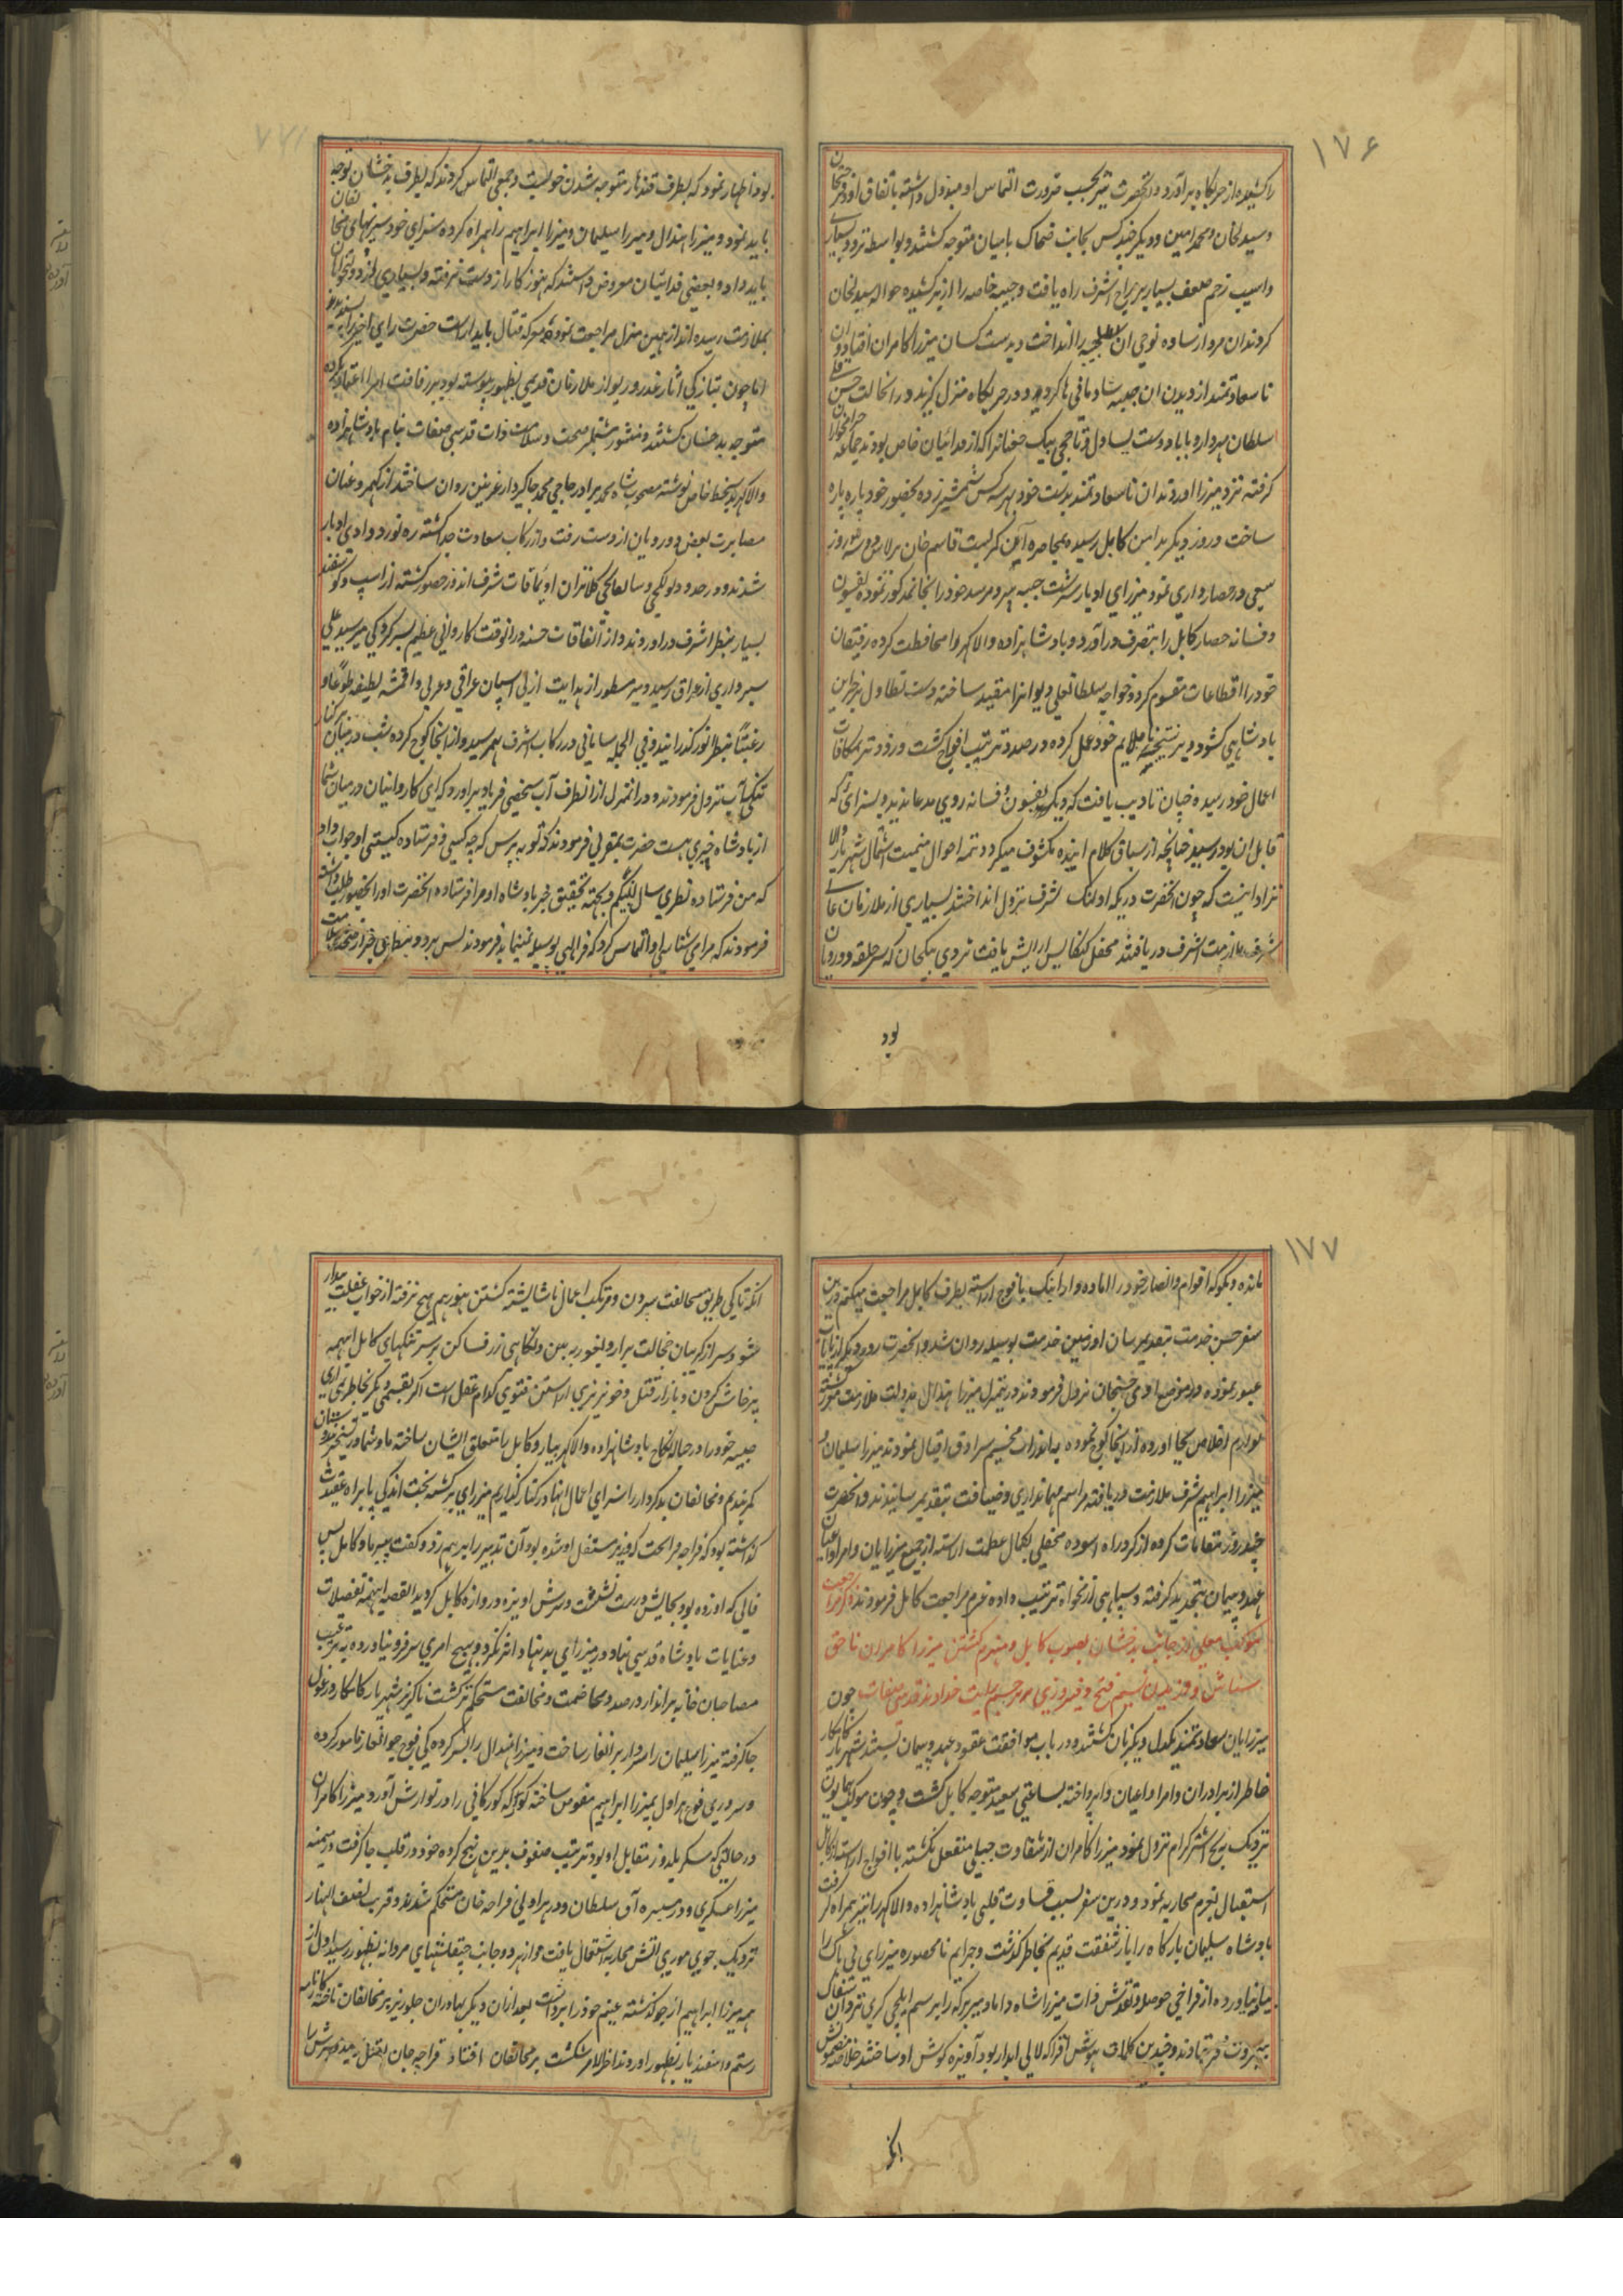 ۱۷۶
را کشیده از حربگاه برآورد و آنحضرت نیز بحسب ضرورت التماس او مبذول داشته باتفاق او و خضر خان
و سید لخان و محمد امین و دیگر چند کس بجانب ضحاک بامیان متوجه گشتند و بواسطه تردد بسیار
و اسیب زخم ضعف بسیار بمزاج اشرف راه یافت و جیبه خاصه را از بر کشیده حواله سیدلخان
کردند ان مرد از ساده لوحی ان جیبه را انداخت و بدست کسان میرزا کامران افتاد و ان
نا سعادتمند از دیدن ان جیبه شادمانی ها کرده و در حربگاه منزل گزید و در انحالت حسن قلی
سلطان مهردار و بابا دوست یساول و تاخجی بیک جغانرا که از فدائیان خاص بودند جماعه حرامخواران
گرفته نزد میرزا اوردند ان نا سعادتمند بدست خود بهر سه کس شمشیر زده بحضور خود پاره پاره
ساخت و روز دیگر بدامن کابل رسیده بمحاصره آیین گرلیت قاسم خان برلاس دو سه روز
سعی در حصار داری نمود میرزای ادبار سرشت جیبه پیر و مرشد خود را انجا نمد کور نموده بفسون
و فسانه حصار کابل را بتصرف درآورد و بادشاهزاده والا گهر را محافظت کرده رفیقان
خود را اقطاعات مقسوم کرد و خواجه سلطانعلی دیوانرا مقید ساخته دست تطاول بر خزاین
بادشاهی کشود و بر نتیجه ناملایم خود عمل کرده در صدد ترتیب افواج گشت و زود تر بمکافات
اعمال خود رسیده چنان تادیب یافت که دیگر بفسون و فسانه روی مدعا ندید و بسزائی که
قابل ان بود رسید چنانچه از سیاق کلام اینده مکشوف میگردد تتمه احوال میمنت اشتمال شهریار والا
نژاد اینست که چون انحضرت در یکه اولنگ شرف نزول انداختند بسیاری از ملازمان عالی
شرف ملازمت اشرف دریافتند محفل کنکاش ارایش یافت تردی بیکخان که سرحلقه دورویان
بود
بود اظهار نمود که بطرف قندهار متوجه شدن خوبست و جمعی التماس کردند که بطرف بدخشان توجه
باید نمود و میرزا هندال و میرزا سلیمان و میرزا ابراهیم را همراه کرده سزای خود سریهای مخالفان
باید داد و بعضی فدائیان معروض داشتند که هنوز کار از دست نرفته و بسیاری از دولتخواهان
بملازمت رسیده اند از همین منزل مراجعت نموده معرکه قتال باید اراست حضرت رای اخیر را پسندیده
اما چون بتازگی اثار غدر و ریو از ملازمان قدیمی بظهور پیوسته بود بر رفاقت امرا اعتماد نکرده
متوجه بدخشان گشتند و منشور مشتمل بر صحت و سلامت ذات قدسی صفات بنام بادشاهزاده
والا گهر بدستخط خاص نوشته مصحوب شاه محمد برادر حاجی محمد جاگیردار غزنین روان ساختند از کهمرد عنان
مصابرت بعض دورویان از دست رفت و از رکاب سعادت جدا گشته ره نورد وادی ادبار
شدند و در حدود دولکچی و سالعالجی کلانتران اویماقات شرف اندوز حضور گشته از اسپ و گوسفند
بسیار بنظر اشرف دراوردند و از اتفاقات حسنه درانوقت کاروانی عظیم بسرکردگی میر سید علی
سبرواری از عراق رسید و میر مسطور از هدایت ازلی اسپان عراقی و عربی و اقمشه لطیفه طوعاً و
رغبتاً بنظر انور گذرانیدند و فی الجمله سامانی در رکاب اشرف بهم رسید و از انجا کوچ کرده شب در میان برکنار
تنگی آب نزول فرمودند و در انمنزل از انطرف آب شخصی فریاد براورد که ای کاروانیان در میان شما
از بادشاه خبری هست حضرت بمغولی فرمودند که تو بپرس که چه کسی و فرستاده کیستی او جواب داد
که من فرستاده نظری سال بیگیم و بجهته تحقیق خبر بادشاه او مرا فرستاده انحضرت او را بحضور طلب داشته
فرمودند که مرا می شناسی او التماس کرد که فر الهی بوسیله نمیماید فرمودند پس برو و بنظری خبر از صحت و سلامت
۱۷۷
مانده و بگو که اقوام و انصار خود را اماده دارد اینک با فوج اراسته بطرف کابل مراجعت میکنم و درین
سفر حسن خدمت بتقدیم رسان او زمین خدمت بوسیده روان شد و انحضرت روز دیگر از پایاب
عبور نموده در موضع اومی خنجان نزول فرمودند در منزل میرزا هندال بدولت ملازمت مشرف گشته
لوازم اخلاص بجا اورده از انجا کوچ نموده به اندراب مخیم سرادق اقبال نمودند میرزا سلیمان و
میرزا ابراهیم شرف ملازمت دریافته مراسم مهمانداری و ضیافت بتقدیم رسانیدند و انحضرت
چند روز مقامات کرده از گرد راه اسوده محفلی بکمال عظمت اراسته از جمیع میرزایان و امرا و اعیان
عهد و پیمان بتجدید گرفته و سپاهی از نخواه ترتیب داده عزم مراجعت کابل فرمودند ذکر مراجعت
موکب معلی از جانب بدخشان بصوب کابل و منهزم گشتن میرزا کامران ناحق
شناس و وزیدن نسیم فتح و فیروزی بر پرچم رایت خداوند قدسی صفات چون
میرزایان سعادتمند یکدل و یکزبان گشتند و در باب موافقت عقود عهد و پیمان بستند شهریار کامکار
خاطر از برادران و امرا و اعیان وا پرداخته بساعتی سعید متوجه کابل گشت و چون موکب همایون
نزدیک بپنج اشتر کرام نزول نمود میرزا کامران از شقاوت جبلی منفعل نگشته با افواج اراسته از کابل
استقبال بعزم محاربه نمود و درین سفر بسبب قساوت قلبی بادشاهزاده والا گهر را نیز همراه گرفت
بادشاه سلیمان بارگاه را باز شفقت قدیم بخاطر گذشت و جرایم نامحصوره میرزای بی باک را
بیاد نیاورده از فراخی حوصله و تقدس ذات میرزا شاه داماد میر برکه را برسم ایلچی گری نزد ان شقاق
پیرویت فرستادند و چندین کلمات هوش افزا که لالی ابدار بود آویزه گوش او ساختند خلاصه مضمونش
انکه
انکه تا کی طریق مخالفت سپردن و مرتکب اعمال ناشایشته گشتن هنوز هم هیچ نرفته از خواب غفلت بیدار
شو و سر از گریبان خجالت برار و بغور ببین و نگاهی ز فساد کن بر سر تنگهای کابل اینهمه
پرخاش کردن و بازار قتل و خونریزی اراستن فتوی کدام عقل است اگر نقیضی دیگر بخاطر داری
صبیه خود را در حباله نکاح بادشاهزاده والا گهر بیار و کابل بامتعلق ایشان ساخته ما و شما در تسخیر هندوستان
کمر بندیم و مخالفان بدکردار را سزای اعمال انها در کنار گذاریم میرزای برگشته بخت اندکی پا براه عقیدت
گذاشته بود که قراجه قراحت کور نیز مستقل او شده بود آن تدبیر را برهم زد و گفت سیرما و کابل بس
فالی که او زده بود بجایش درست نشست و سرش اویزه دروازه کابل گردید القصه اینهمه تفضلات
و عنایات بادشاه قدسی نهاد در میرزای بد نهاد اثر نکرد و بهیچ امری سر فرو نیاورده بترغیب
مصاحبان خانه برانداز در صدد مخاصمت و مخالفت مستحکم تر گشت ناگزیر شهریار کامکار در غول
جا گرفته میرزا سلیمان را سردار برانغار ساخت و میرزا هندال را بسرکردگی فوج جوانغار نامور کرده
و سروری فوج هراول بمیرزا ابراهیم مفوض ساخته کوکبه گورکانی را در توارش آورد و میرزا کامران
در حالتی که عسکر یلدوز مقابل او بود ترتیب صفوف بدین نهج کرده خود در قلب جا گرفت در میمنه
میرزا عسکری و در میسره آق سلطان و در هراولی قراجه خان مستحکم شدند و قریب نصف النهار
نزدیک بجوی موری اتش محاربه اشتعال یافت و از هر دو جانب چپقلشهای مردانه بظهور رسید اول از
همه میرزا ابراهیم از جو گذشته غنیم خود را برداشت بعد ازان دیگر بهادران جلوریز بر مخالفان تاخته کارنامه
رستم و اسفندیار بظهور اوردند اخرالامر شکست بر مخالفان افتاد قراجه جان بقتل رسیده و سرش را